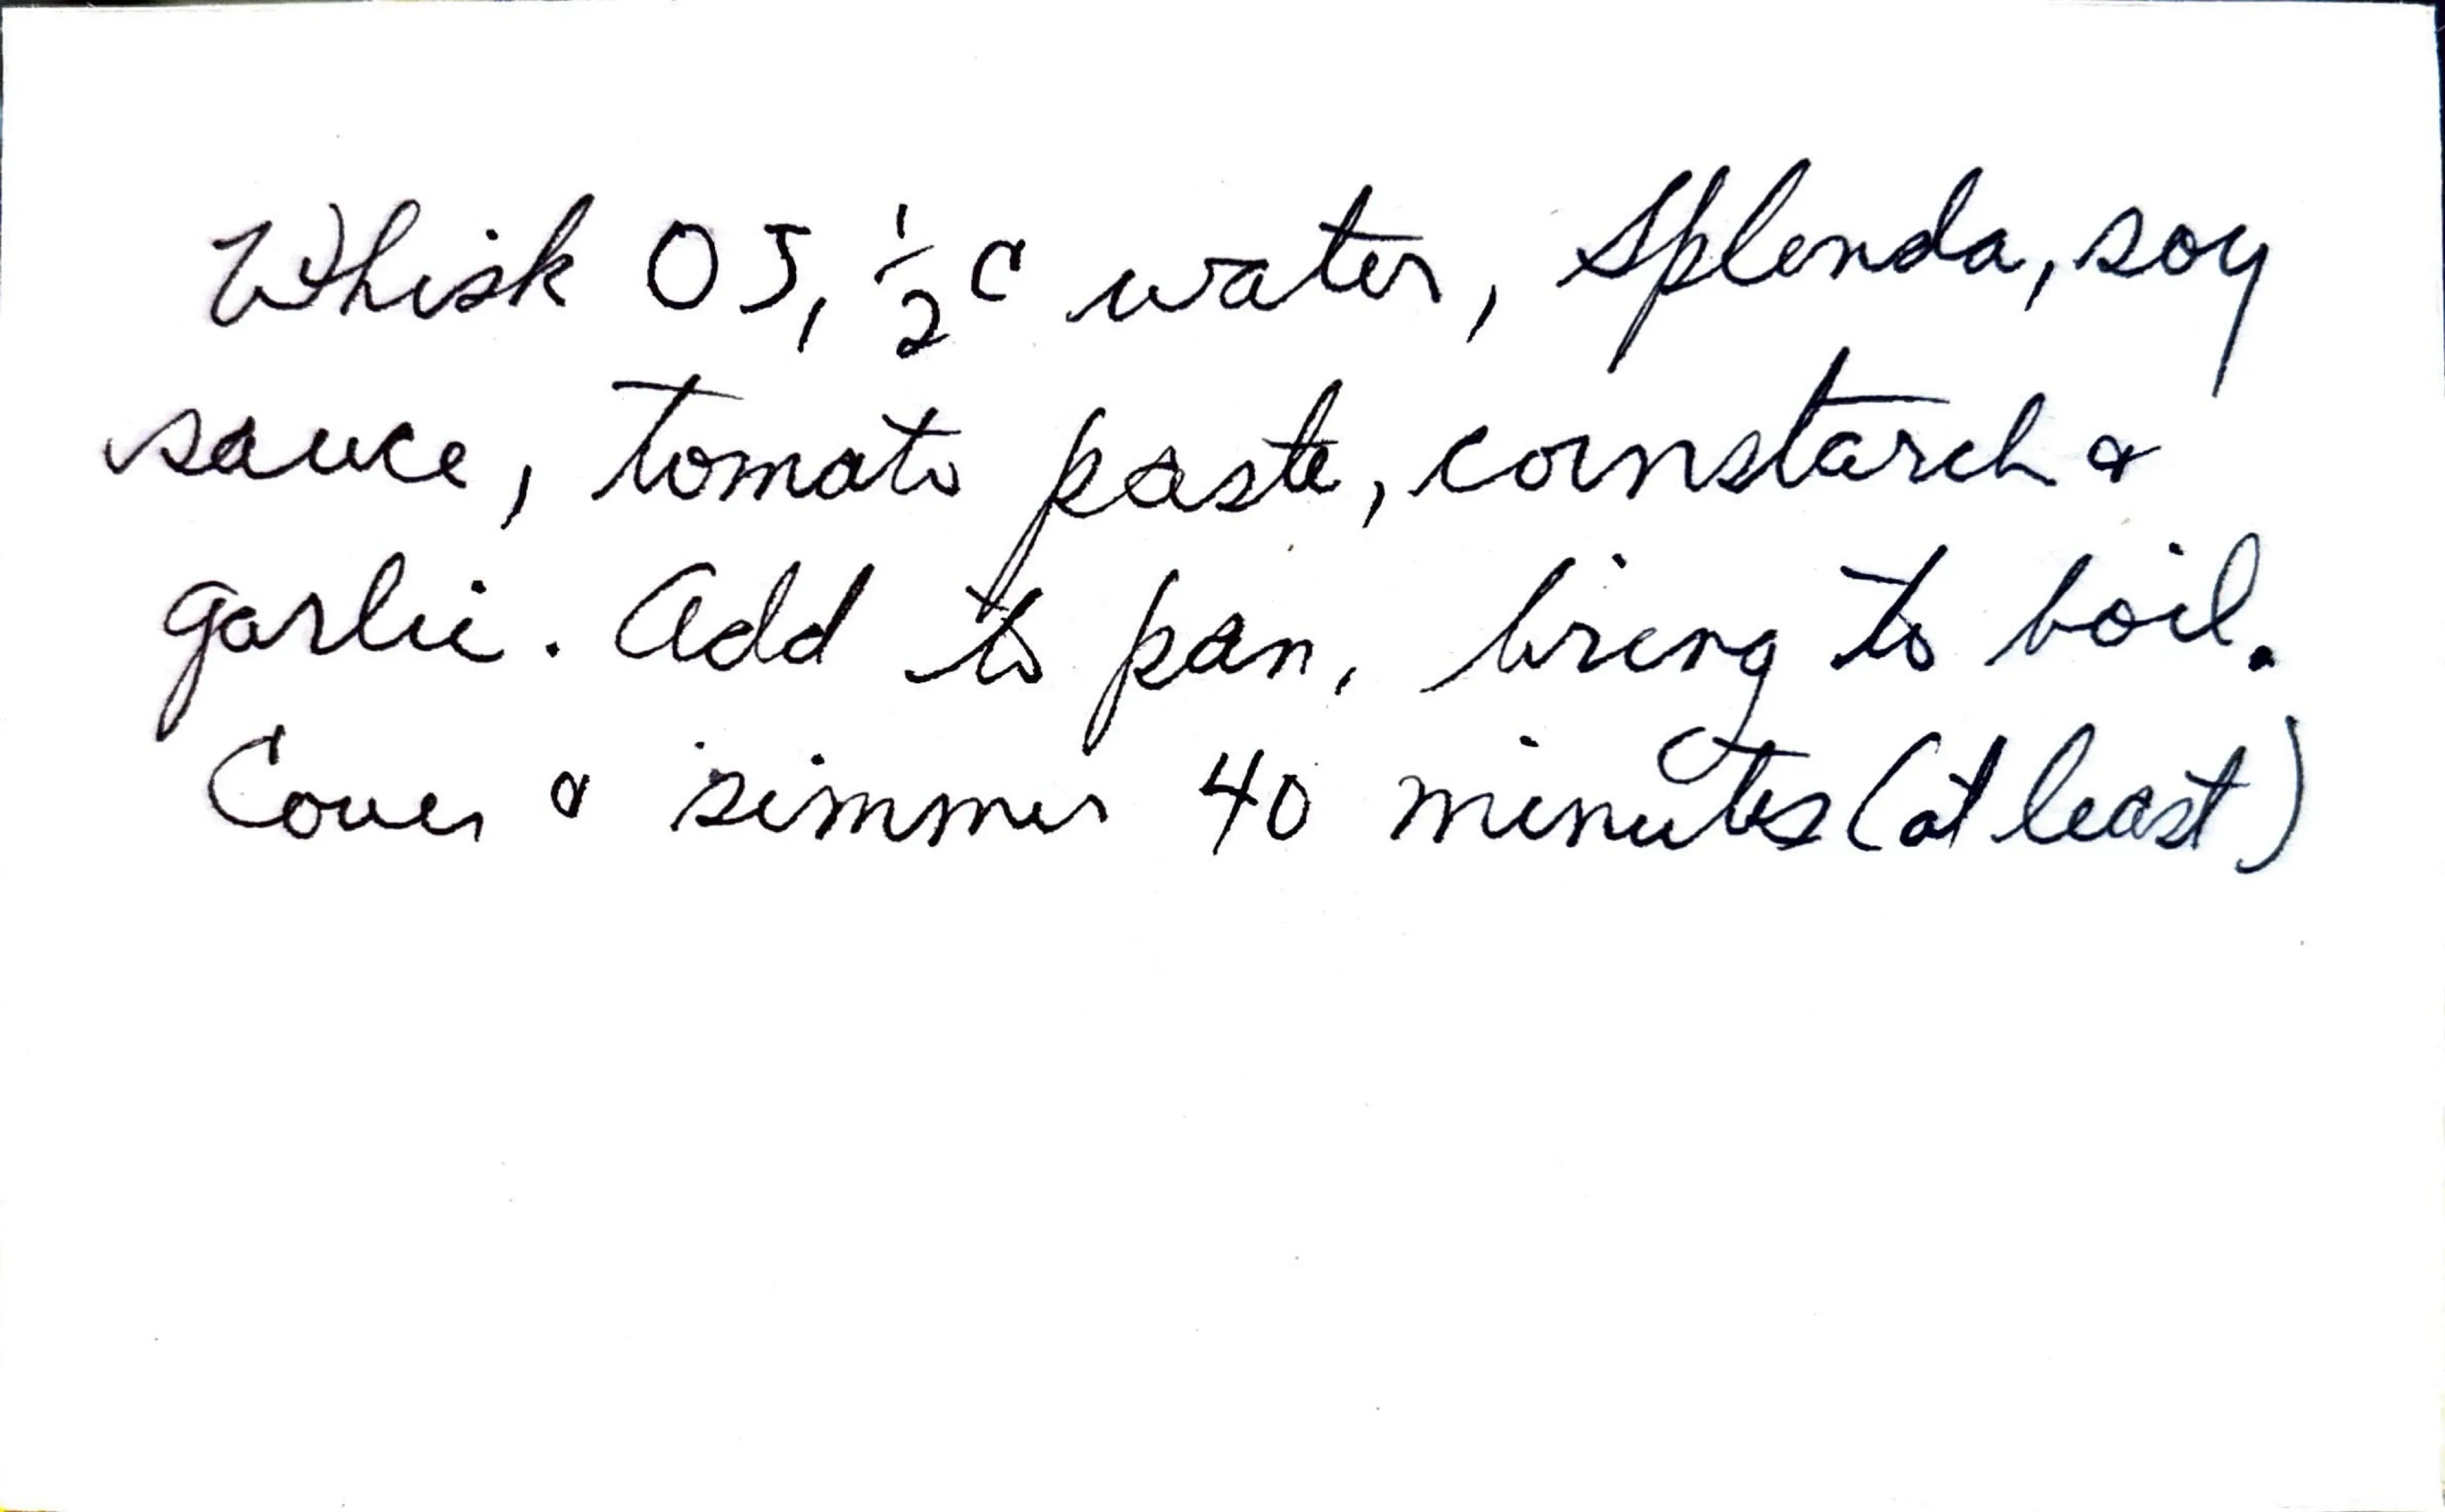 Whisk OJ, 1/2 c water, Splenda, soy
sauce, tomato paste, cornstarch &
garlic. Add to pan, bring to boil.
Cover & simmer 40 minutes (at least)